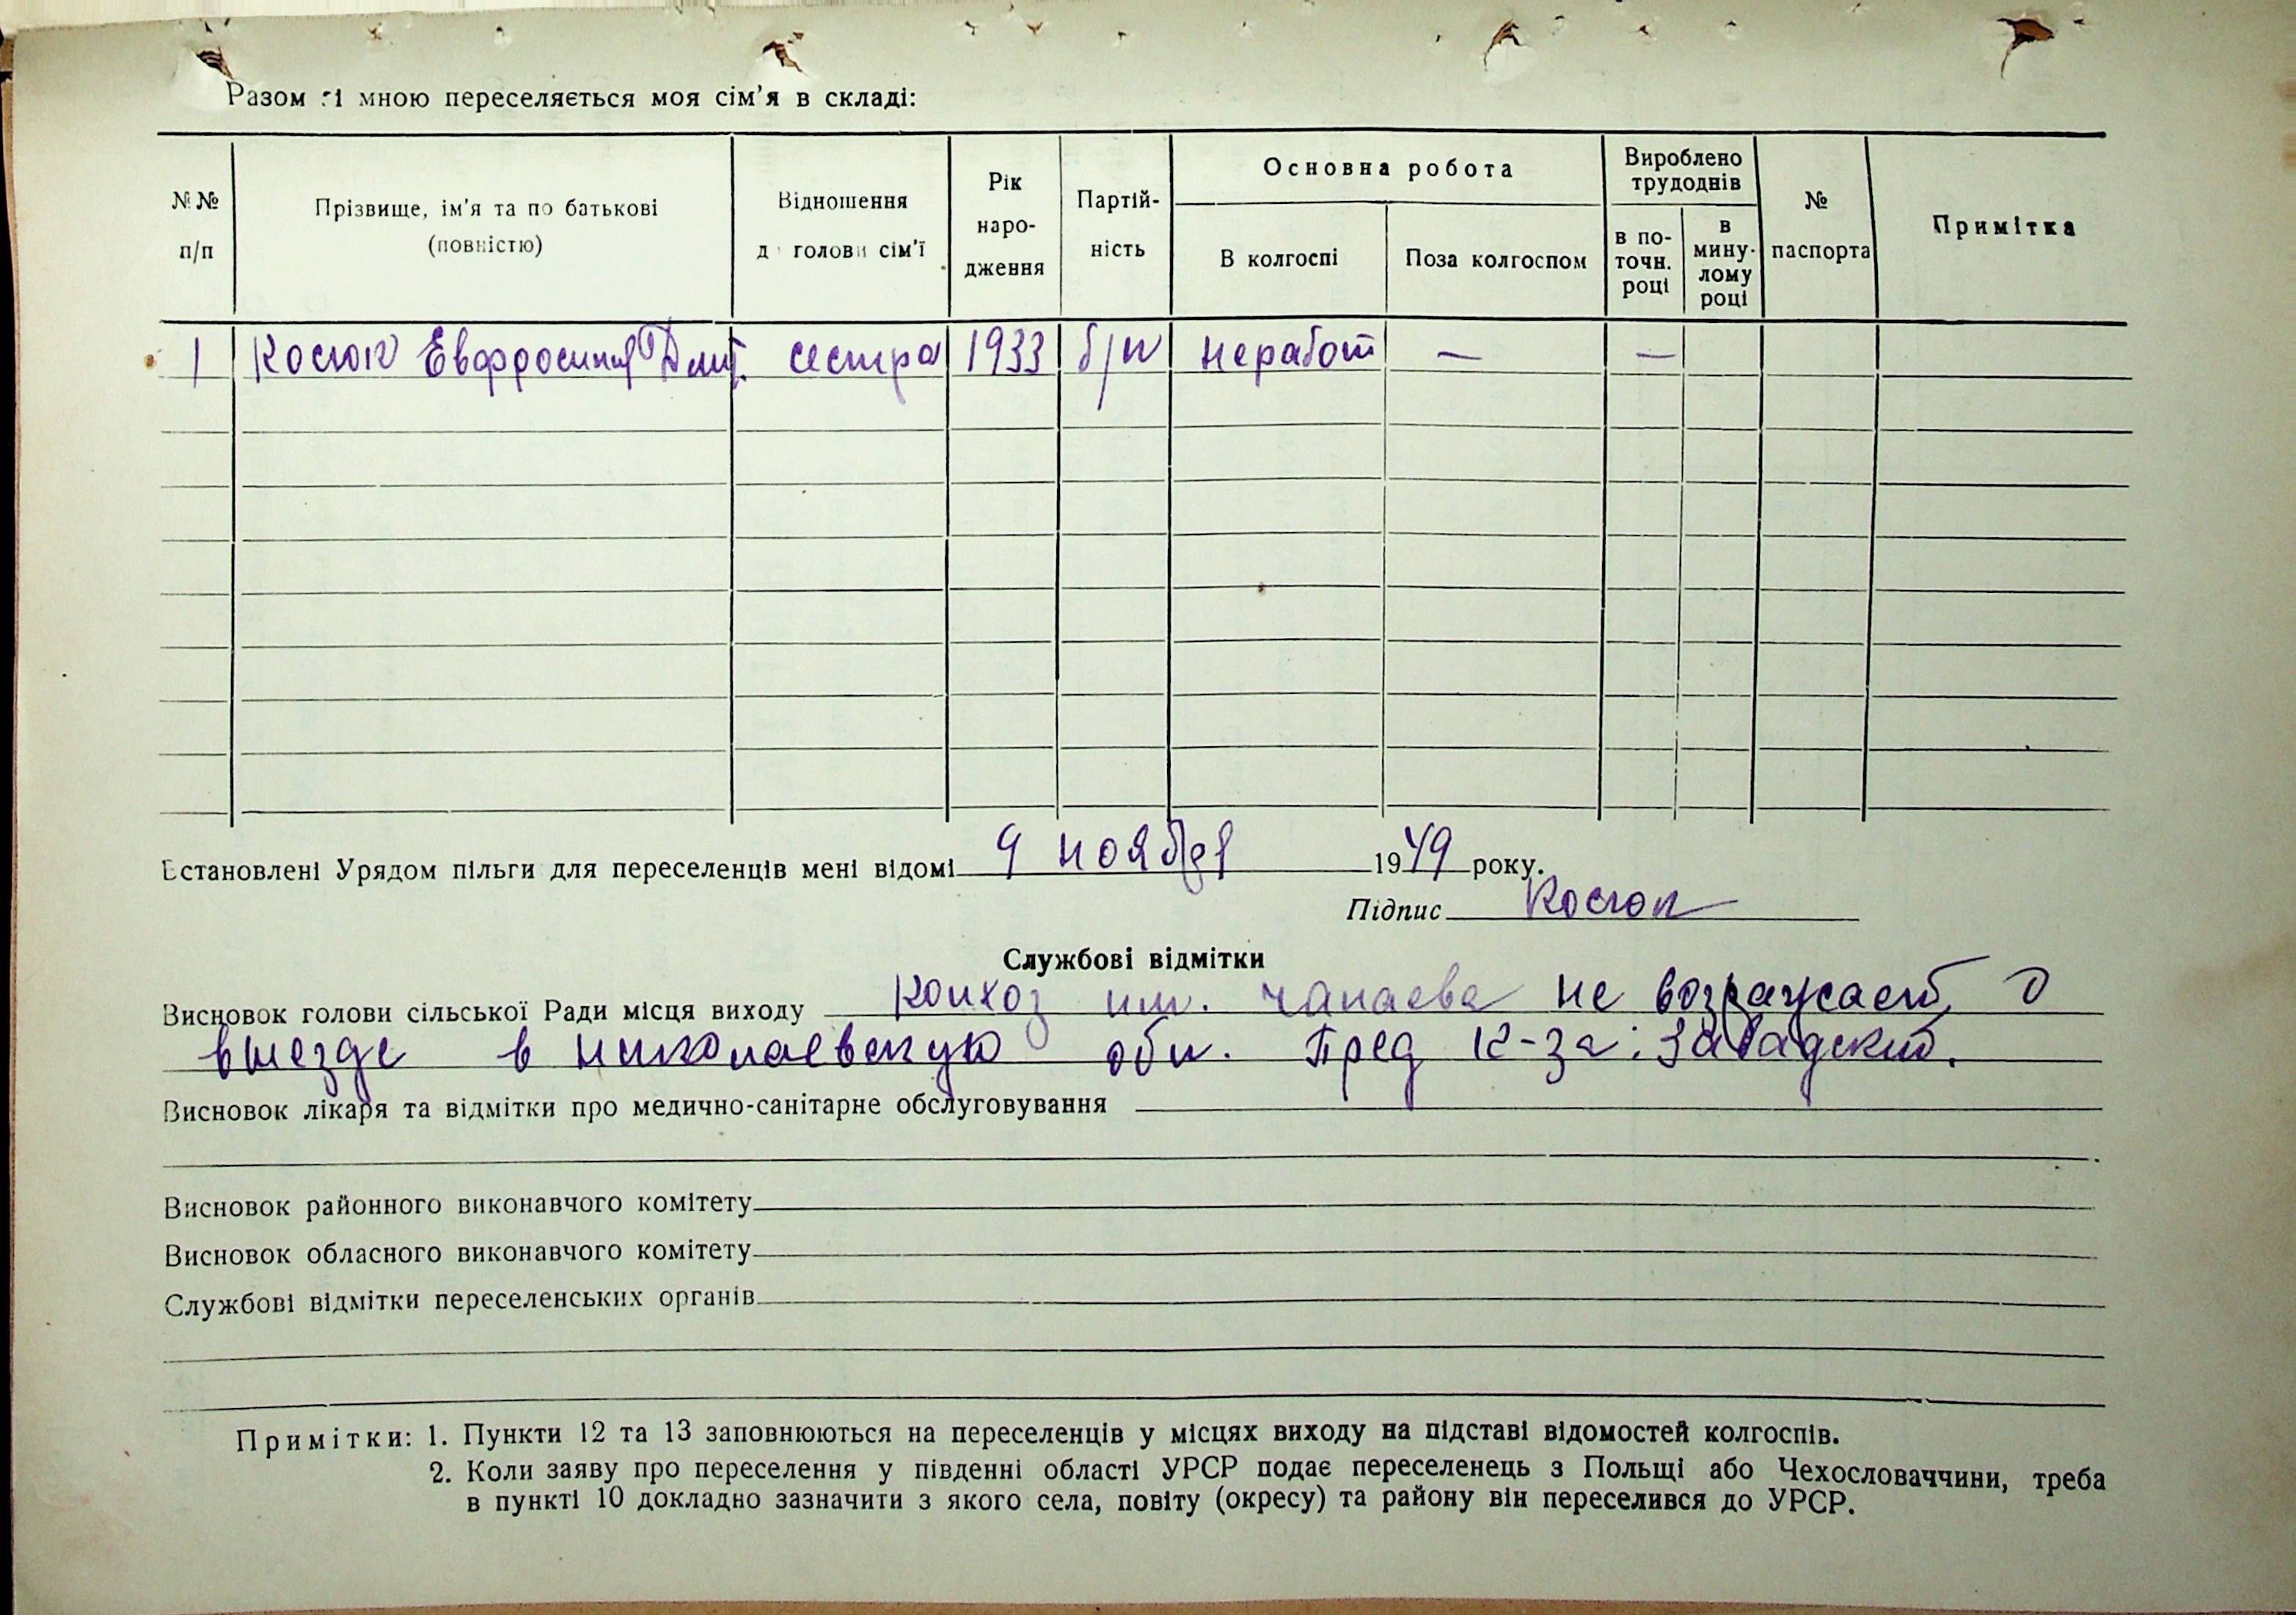 Разом зі мною переселяється моя сім'я в складі:
№№ п/п
Прізвище, ім'я та по батькові (повністю)
Відношення д голови сім'ї
Рік народження
Партійність
Основна робота
В колгоспі
Поза колгоспом
Вироблено трудоднів
в поточн. році
в минулому році
№ паспорта
Примітка
1 Косюк Евфросиния Дмит. сестра 1933 б/п неработ — —
Встановлені Урядом пільги для переселенців мені відомі 9 ноября 1949 року.
Підпис Косюк
Службові відмітки
Висновок голови сільської Ради місця виходу Колхоз им. Чапаева не возражает о
выезде в николаевскую обл. Пред к-за: Завадский.
Висновок лікаря та відмітки про медично-санітарне обслуговування
Висновок районного виконавчого комітету
Висновок обласного виконавчого комітету
Службові відмітки переселенських органів
Примітки: 1. Пункти 12 та 13 заповнюються на переселенців у місцях виходу на підставі відомостей колгоспів.
2. Коли заяву про переселення у південні області УРСР подає переселенець з Польщі або Чехословаччини, треба
в пункті 10 докладно зазначити з якого села, повіту (окресу) та району він переселився до УРСР.